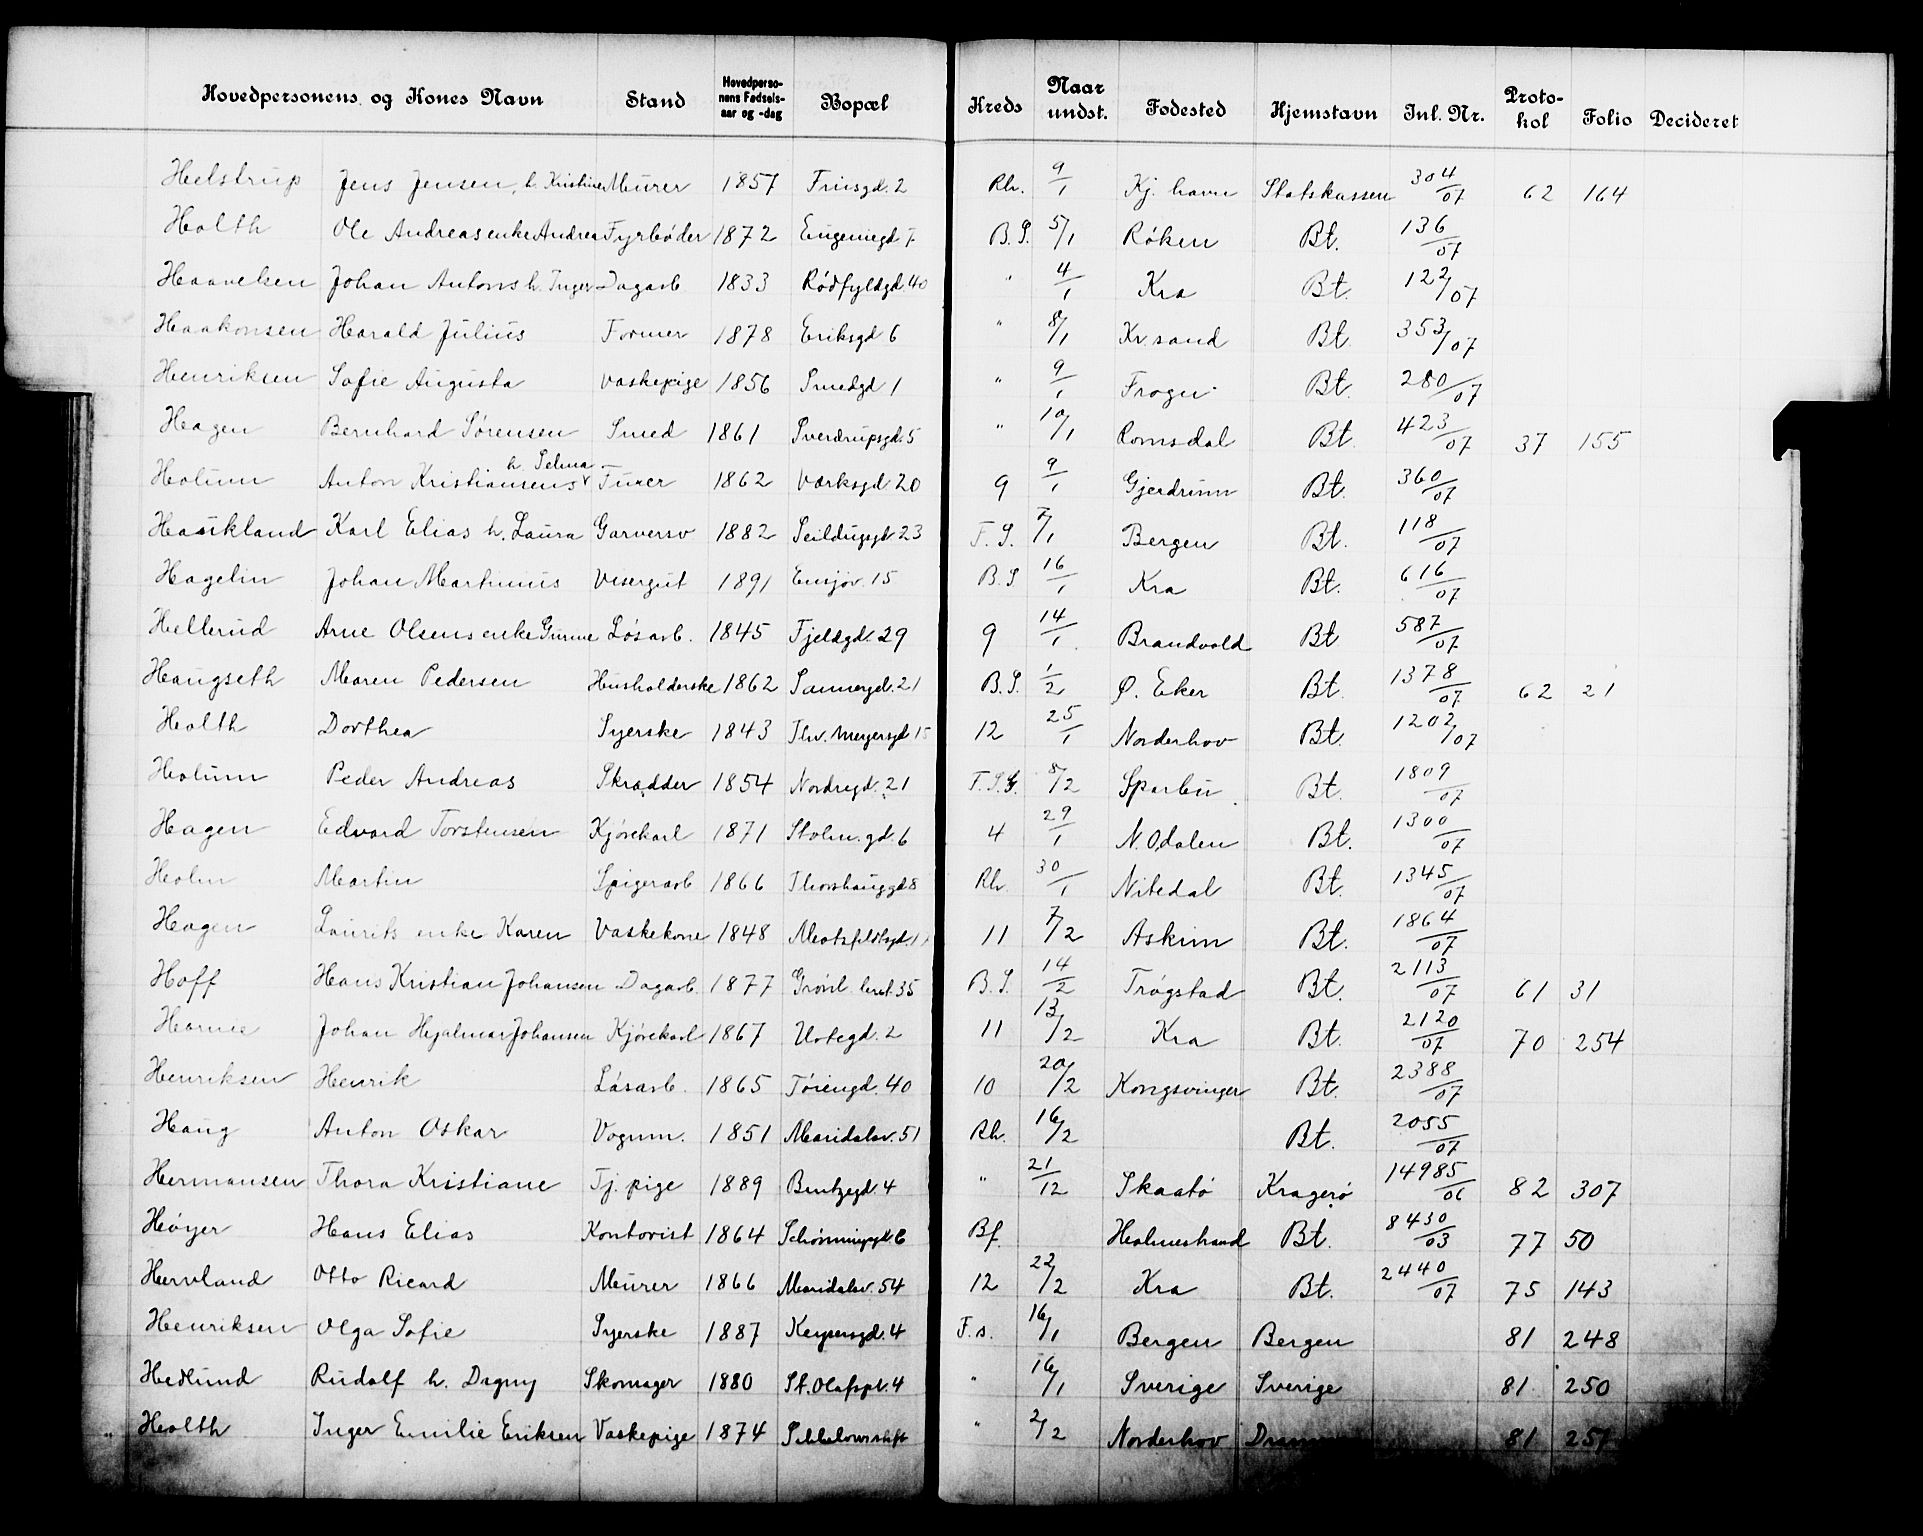 Hovedpersonens og Kones Navn Stand Hovedperso-nens Fødsels-aar og -dag Bopæl Kreds Naar undst. Fødested Hjemstavn Inl. Nr. Proto-kol Folio Decideret
Helstrup Jens Jensen, h. Kristine Murer 1857 Friisgd. 2 Rh. 9/1 Kj. havn Statskassen 304/07 62 164
Holth Ole Andreas enke Andrea Fyrbøder 1872 Eugeniegd 7 B.S. 5/1 Røken Bt. 136/07
Haavelsen Johan Antons h. Inger Dagarb 1833 Rødfyldgd. 40 " 4/1 Kra Bt. 122/07
Haakonsen Harald Julius Former 1878 Eriksgd 6 " 8/1 Kr.sand Bt. 353/07
Henriksen Sofie Augusta Vaskepige 1856 Smedgd 1 " 9/1 Frogn Bt. 280/07
Hagen Bernhard Sørensen Smed 1861 Sverdrupsgd. 5 " 10/1 Romsdal Bt. 423/07 37 155
Holum Anton Kristiansens h. Selma Turer 1862 Værksgd. 20 9 9/1 Gjerdrum Bt. 360/07
Hauikland Karl Elias h. Laura Garversv 1882 Seildugsgd 23 F.S. 7/1 Bergen Bt. 118/07
Hagelin Johan Martinius Visergut 1891 Ensjøv. 15 B.S 16/1 Kra Bt. 616/07
Hellerud Arne Olsens enke Gunne Løsarb. 1845 Fjeldgd. 29 9 14/1 Brandvold Bt 587/07
Haugseth Maren Pedersen Husholderske 1862 Sannergd. 21 B.S. 1/2 Ø. Eker Bt. 1378/07 62 21
Holth Dorthea Syerske 1843 Thv. Meyersgd 15 12 25/1 Norderhov Bt. 1202/07
Holum Peder Andreas Skrædder 1854 Nordregd. 21 T.S.G. 8/2 Sparbu Bt. 1809/07
Hagen Edvard Torstensen Kjørekarl 1871 Stolm. gd. 6 4 29/1 N. Odalen Bt. 1300/07
Holm Martin Spigerarb 1866 Thorshauggd 8 Rh. 30/1 Nitedal Bt. 1345/07
Hagen Laurits enke Karen Vaskekone 1848 Motzfeldtsgd. 11 7/2 Askim Bt. 1864/07
Hoff Hans Kristian Johansen Dagarb. 1877 Grønl. leret. 35 B.S. 14/2 Trøgstad Bt. 2113/07 61 31
Johan Hjalmar Johansen Kjørekarl 1867 Urtegd. 2 11 13/2 Kra Bt. 2120/07 70 254
Henriksen Henrik Løsarb. 1865 Tøiengd. 40 10 20/2 Kongsvinger Bt. 2388/07
Haug Anton Oskar Vognm. 1851 Maridalsv. 51 Rh. 16/2 Bt. 2055/07
Hermansen Thora Kristiane Tj. pige 1889 Bentzegd. 4 " 21/12 Skaatø Kragerø 14985/06 82 307
Høyer Hans Elias Kontorist 1864 Schønningsgd. 6 Bf. Holmestrand Bt. 8430/03 77 50
Hervland Otto Ricard Murer 1866 Maridalsv. 54 12 22/2 Kra Bt. 2440/07 75 143
Henriksen Olga Sofie Syerske 1887 Keysersgd. 4 F.s. 16/1 Bergen Bergen 81 248
Hedlund Rudolf h. Dagny Skomager 1880 St. Olafspl. 4 " 16/1 Sverige Sverige 81 250
Holth Inger Emilie Eriksen Vaskepige 1874 " 2/2 Norderhov 81 257